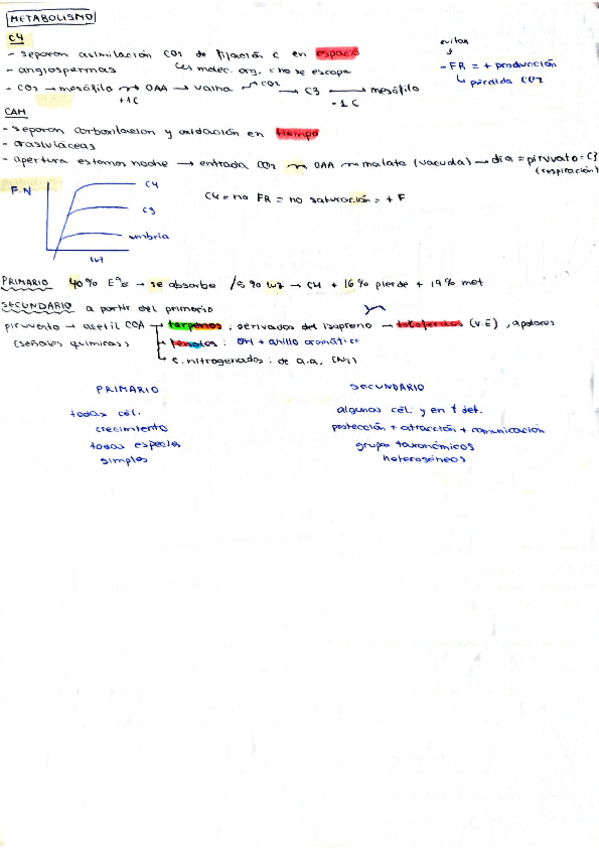 METABOLISMO
C4
evitan
- separan asimilación CO2 de fijación C en espacio
- FR = + producción
- angiospermas
↳ molec. org. c no se escapa
↳ pérdida CO2
- CO2 → mesófilo → OAA → vaina → CO2 → C3 → mesófilo
+1C
-1C
CAM
- separan carboxilacion y oxidación en tiempo
- crasuláceas
- apertura estomas noche → entrada CO2 → OAA → malato (vacuola) → día = piruvato = C3
(respiración)
F.N
C4
C3
umbría
luz
C4 = no FR = no saturación = + F
PRIMARIO 40% E → se absorbe 5% luz → CH + 16% pierde + 19% met
SECUNDARIO a partir del primario
piruvato → acetil COA → terpenos : derivados del isopreno → tocoferoles (v.E), apolares
(señales químicas)
fenoles : OH + anillo aromático
c. nitrogenados : de a.a. (N2)
PRIMARIO
todas cél.
crecimiento
todas especies
simples
SECUNDARIO
algunas cél. y en t det.
protección + atracción + comunicación
grupo taxonómicos
heterogéneos